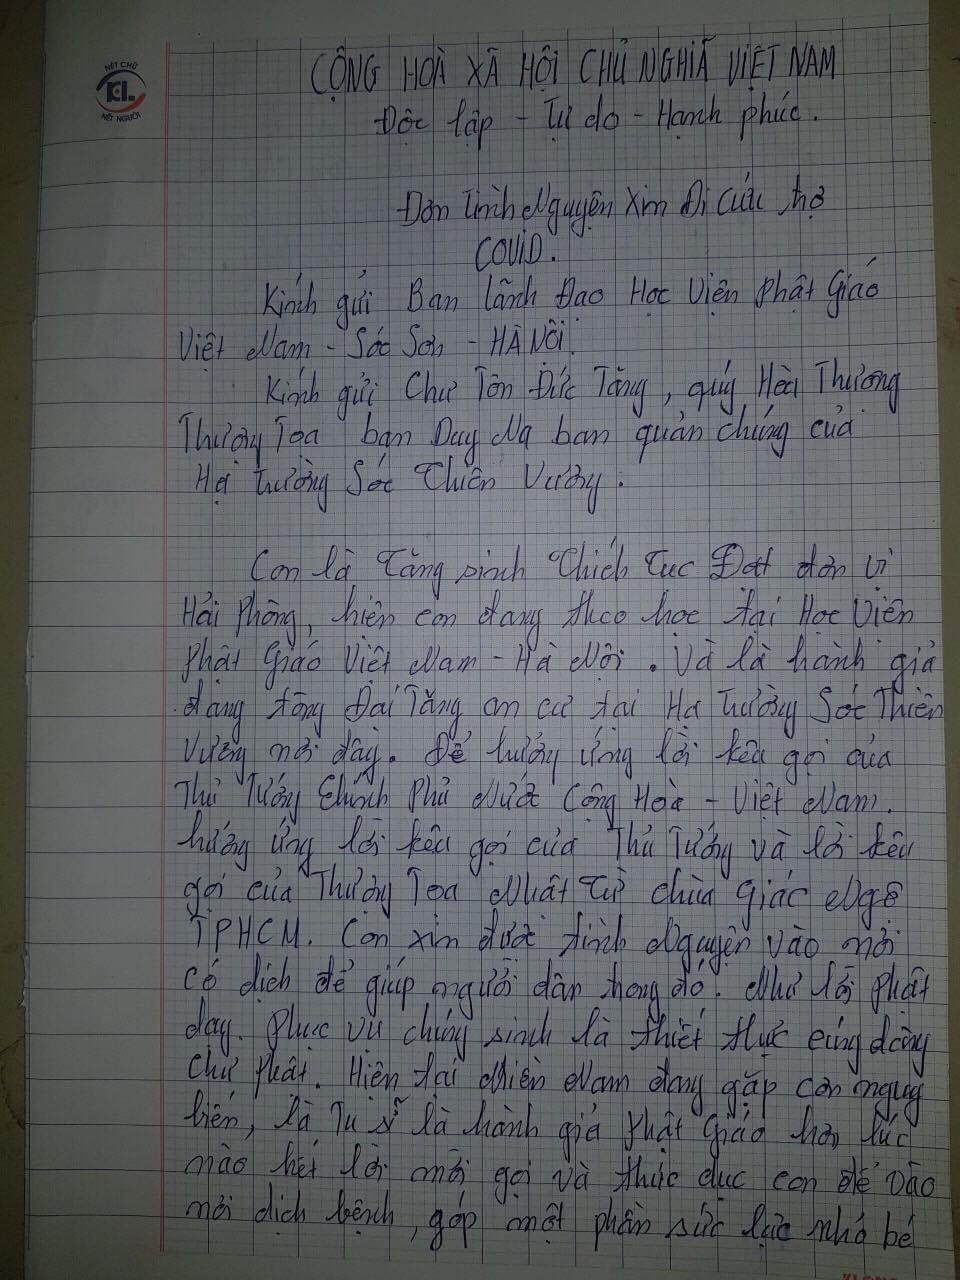 NÉT CHỮ
KL
NẾT NGƯỜI
CỘNG HOÀ XÃ HỘI CHỦ NGHĨA VIỆT NAM
Độc lập - Tự do - Hạnh phúc.
Đơn Tình Nguyện Xin Đi Cứu trợ
COVID.
Kính gửi Ban lãnh Đạo Học Viện Phật Giáo
Việt Nam - Sóc Sơn - HÀ NỘI.
Kính gửi Chư Tôn Đức Tăng, quý Hoà Thượng
Thượng Toạ ban Duy Na ban quản chúng của
Hạ Trường Sóc Thiên Vương.
Con là Tăng sinh Thích Tục Đạt đơn vị
Hải Phòng, hiện con đang theo học tại Học Viện
Phật Giáo Việt Nam - Hà Nội. Và là hành giả
đang tòng Đại Tăng an cư tại Hạ Trường Sóc Thiên
Vương nơi đây. Để hưởng ứng lời kêu gọi của
Thủ Tướng Chính Phủ Nước Cộng Hoà - Việt Nam.
hưởng ứng lời kêu gọi của Thủ Tướng và lời kêu
gọi của Thượng Toạ Nhật Từ chùa Giác Ngộ
TPHCM. Con xin được tình Nguyện vào nơi
có dịch để giúp người dân trong đó. Như lời Phật
dạy. Phục vụ chúng sinh là thiết thực cúng dường
Chư Phật. Hiện tại Miền Nam đang gặp cơn nguy
biến, là Tu sĩ là hành giả Phật Giáo hơn lúc
nào hết lời mời gọi và thúc dục con để vào
nơi dịch bệnh, góp một phần sức lực nhỏ bé